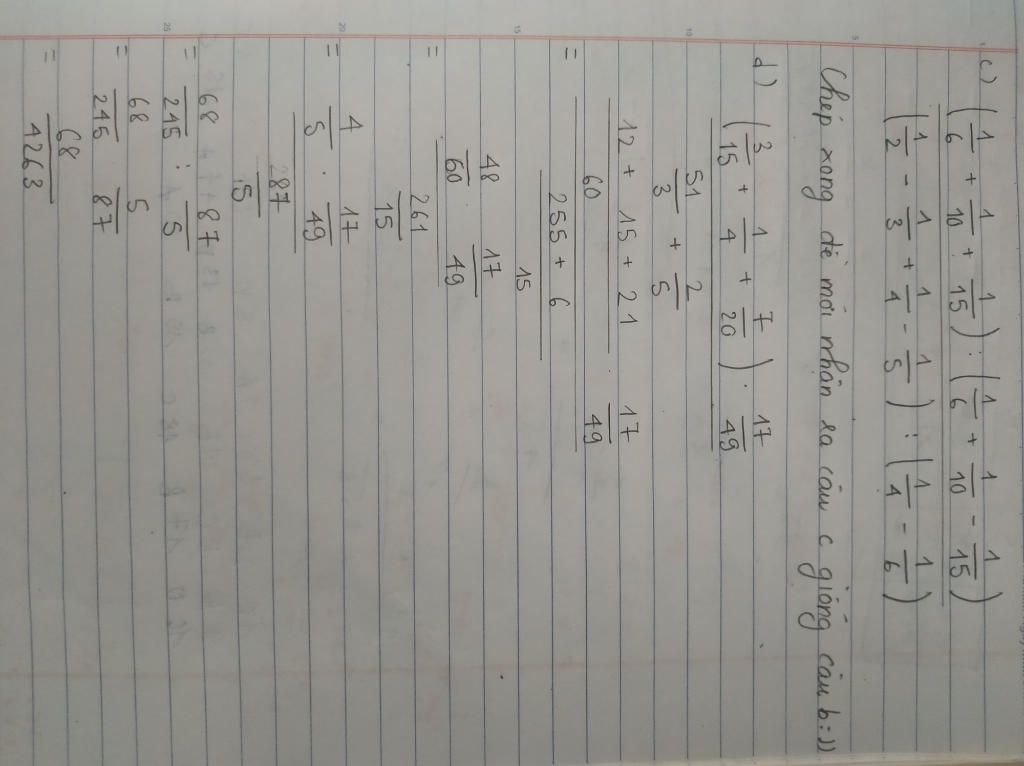 c) (1/6 + 1/10 + 1/15) : (1/6 + 1/10 - 1/15)
(1/2 - 1/3 + 1/4 - 1/5) : (1/4 - 1/6)
Chép xong đề mới nhận ra câu c giống câu b:))
d) (3/15 + 1/4 + 7/20) . 17/49
51/3 + 2/5
= (12 + 15 + 21)/60 . 17/49
(255 + 6)/15
= 48/60 17/49
261/15
= 4/5 . 17/49
287/5
= 68/245 : 87/5
= 68/245 5/87
= 68/4263